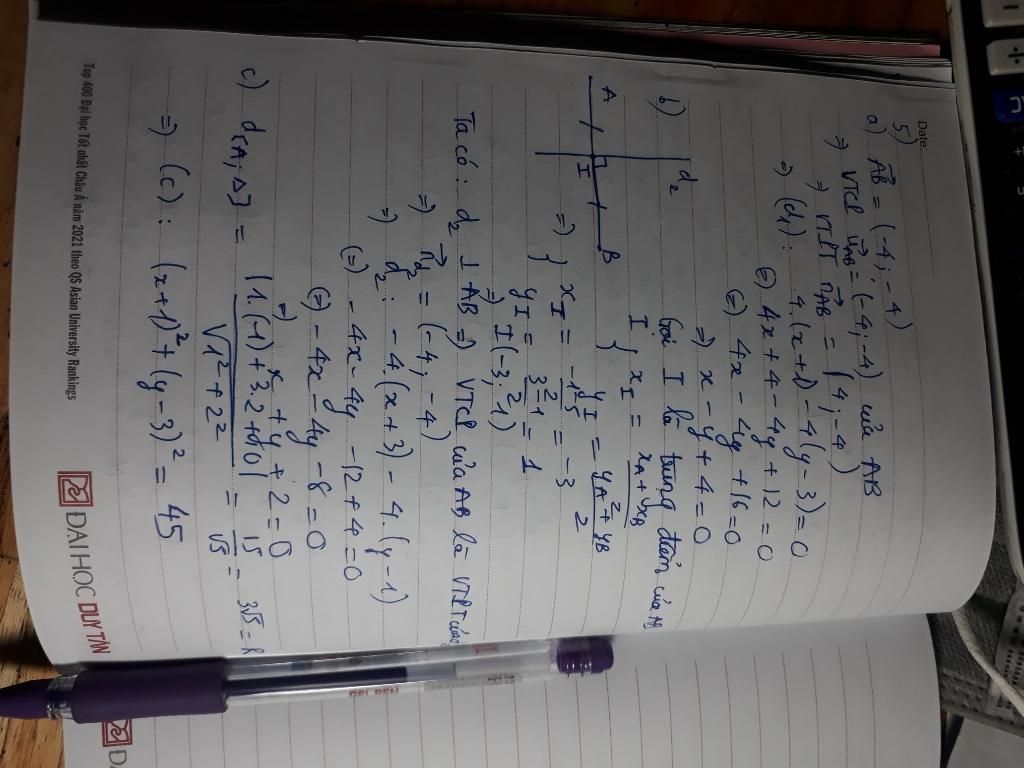 Date:
5)
a) AB⃗ = (-4; -4)
=) VTCP u⃗AB = (-4; -4) của AB
=) VTPT n⃗AB = (4; -4)
=) (d1): 4.(x+1) - 4(y-3) = 0
(=) 4x + 4 - 4y + 12 = 0
(=) 4x - 4y + 16 = 0
=) x - y + 4 = 0
b) d2 Gọi I là trung điểm của AB
A I B
I { xI = xA + xB / 2
yI = yA + yB / 2
=) { xI = -1-5 / 2 = -3
yI = 3-1 / 2 = 1
=) I(-3; 1)
Ta có: d2 ⊥ AB =) VTCP của AB là VTPT của
=) n⃗d2 = (-4; -4)
=) d2: -4.(x+3) - 4.(y-1)
(=) -4x - 4y - 12 + 4 = 0
(=) -4x - 4y - 8 = 0
=) x + y + 2 = 0
c) d[A; Δ] = |1.(-1) + 3.2 + 10| / √1² + 2² = 15 / √5 = 3√5 = R
=) (C): (x+1)² + (y-3)² = 45
ĐẠI HỌC DUY TÂN
Top 400 Đại học Tốt nhất Châu Á năm 2021 theo QS Asian University Rankings